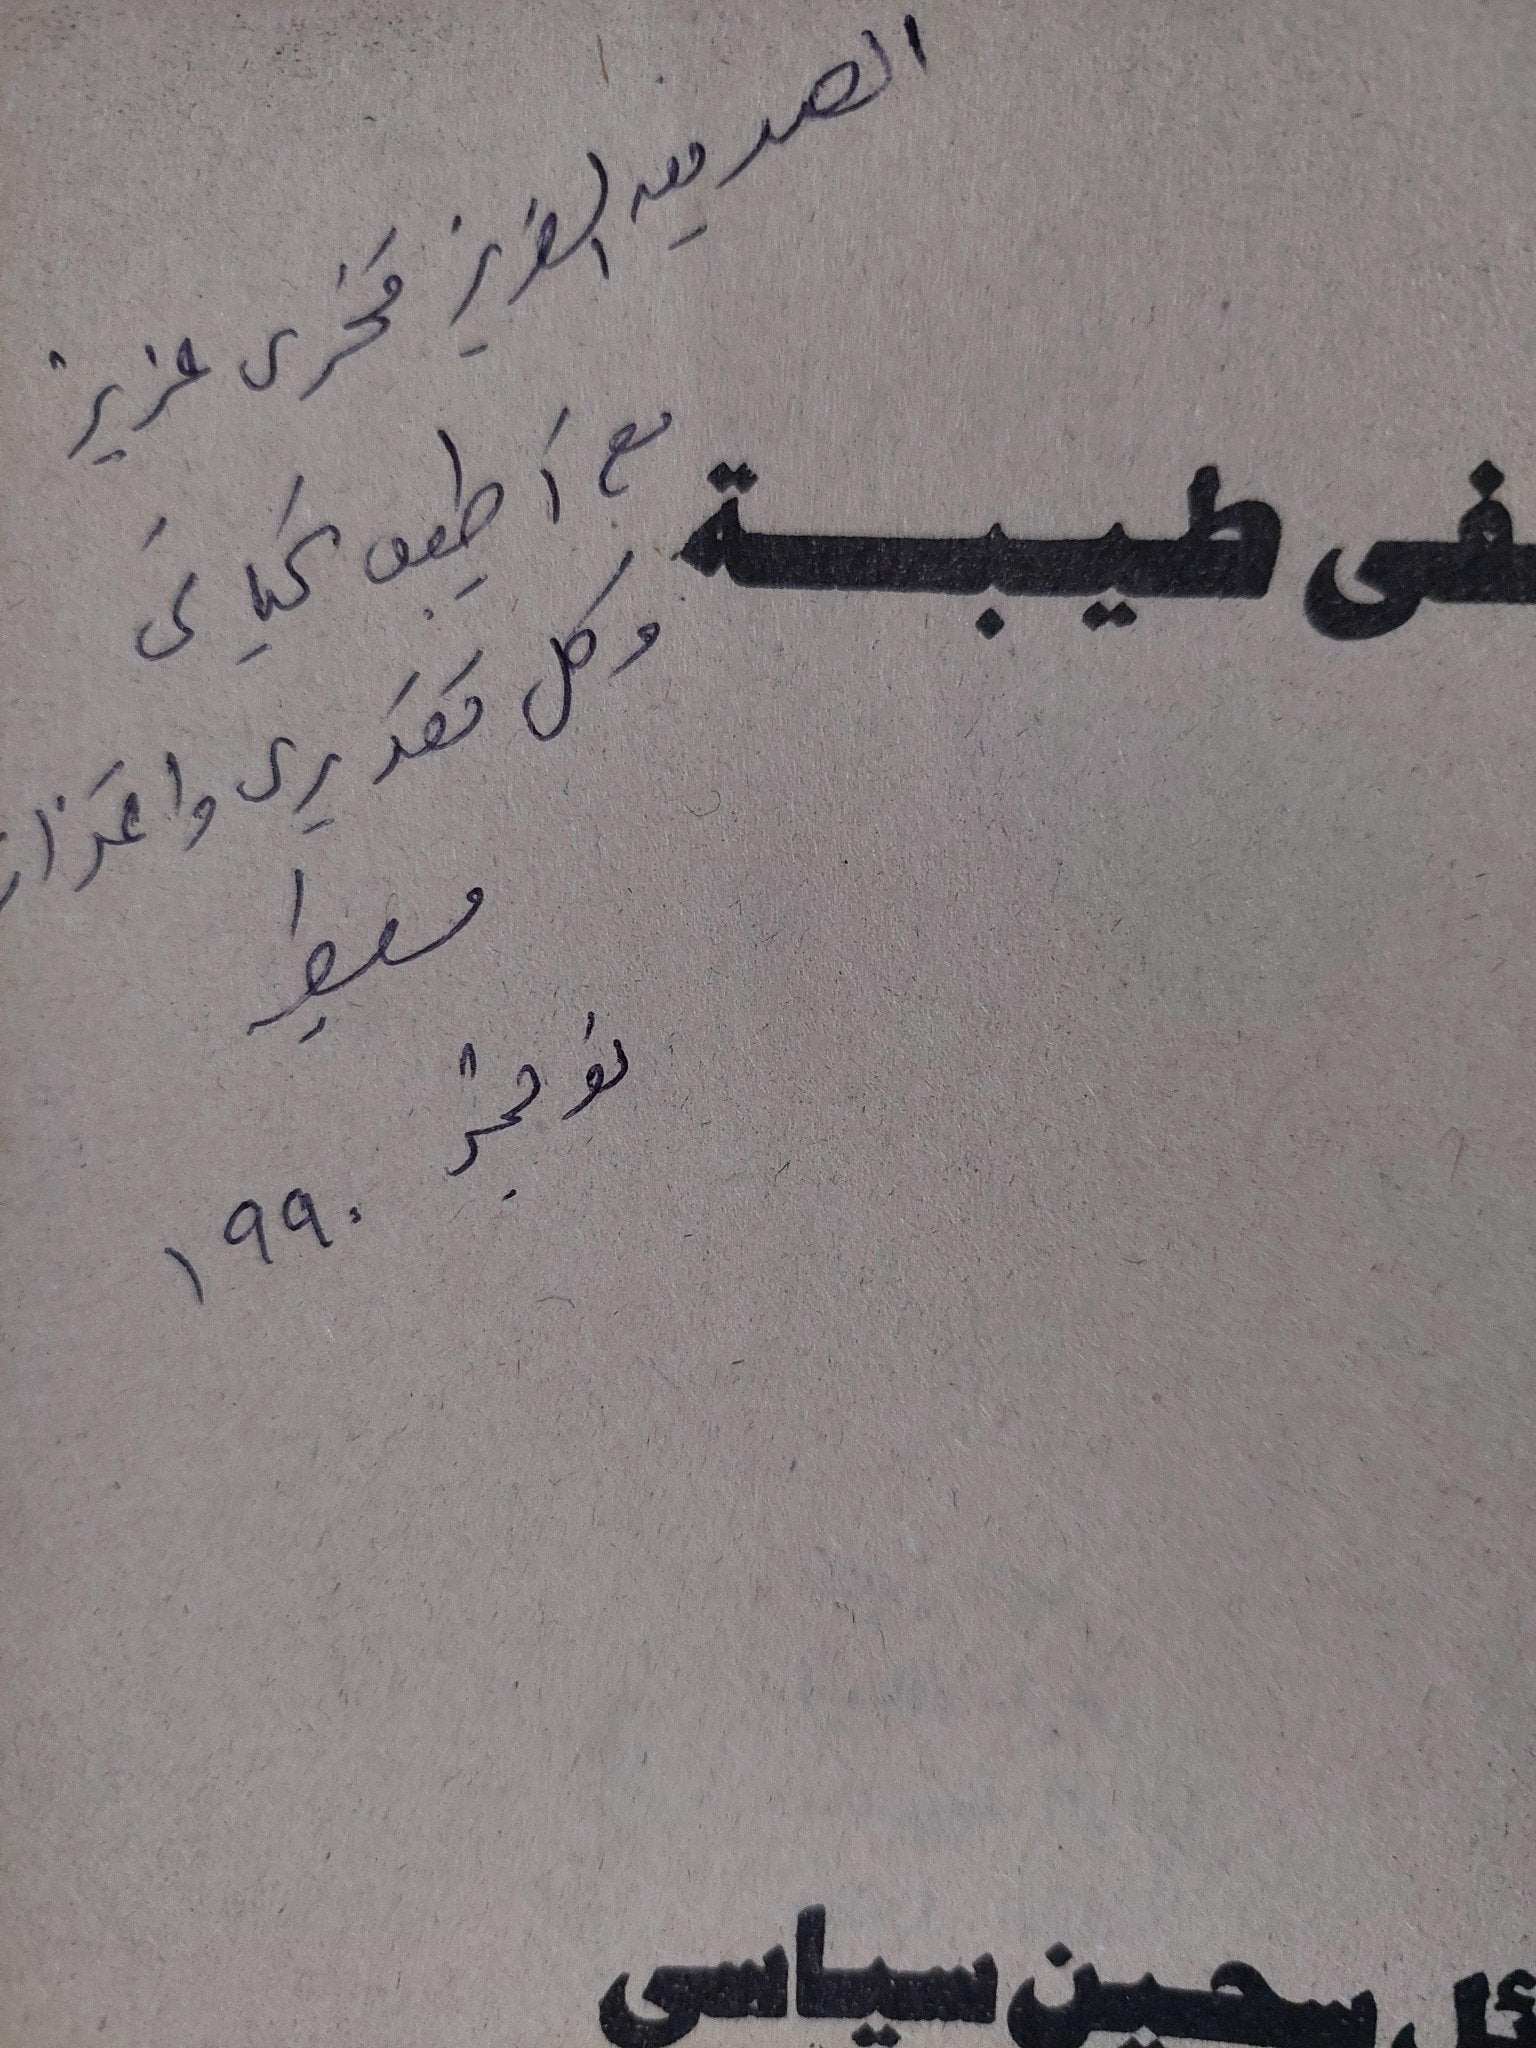 الصديق العزيز فخرى عزيز
مع أطيب تحياتى
وكل تقديرى واعتزازى
نوفمبر
١٩٩٠
فى طيبة
سجين سياسى